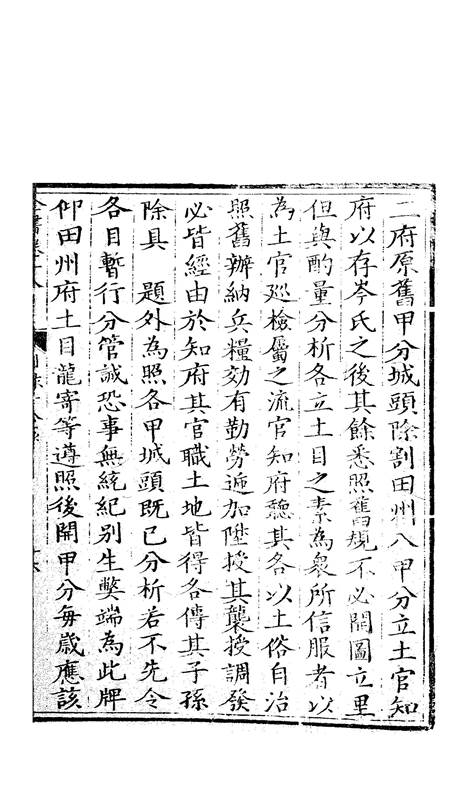 二府原舊甲分城頭除割田州八甲分立土官知
府以存岑氏之後其餘悉照舊規不必開圖立里
但與酌量分析各立土目之素為衆所信服者以
為土官巡檢屬之流官知府聽其各以土俗自治
照舊辦納兵糧効有勤勞遞加陞授其襲授調發
必皆經由於知府其官職土地皆得各傳其子孫
除具　題外為照各甲城頭既已分析若不先令
各目暫行分管誠恐事無統紀別生獘端為此牌
仰田州府土目龍寄等遵照後開甲分每歲應該